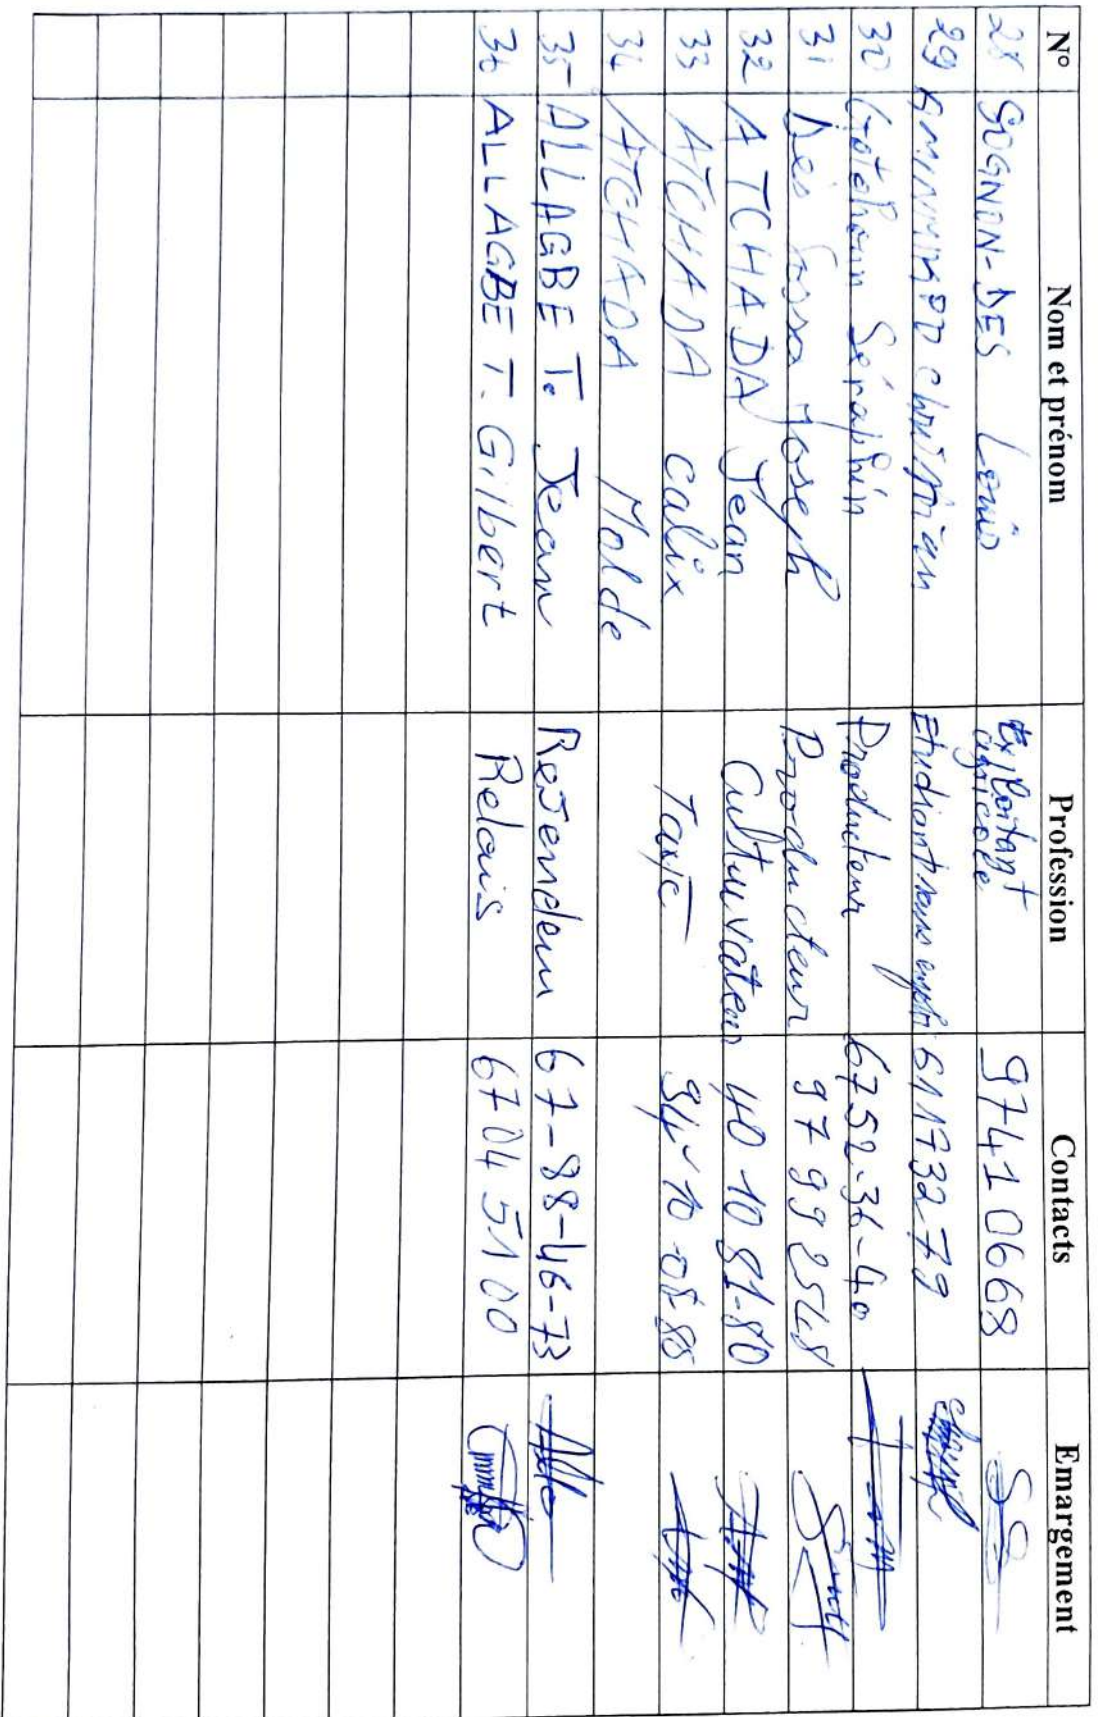 N° Nom et prénom Profession Contacts Emargement
28 SOGNON-DES Louis Exploitant agricole 97410668
29 Christian Etudiant sans 61173279
30 Gotohoun Séraphin Producteur 6752-36-40
31 Dès Sossa Joseph Producteur 97 99 25 48
32 ATCHADA Jean Cultuvateur 40 10 81-80
33 ATCHADA calix 10
34 ATCHADA Molde
35 ALLAGBE T. Jean Revendeur 67-88-46-73
36 ALLAGBE T. Gilbert Relais 67 04 51 00